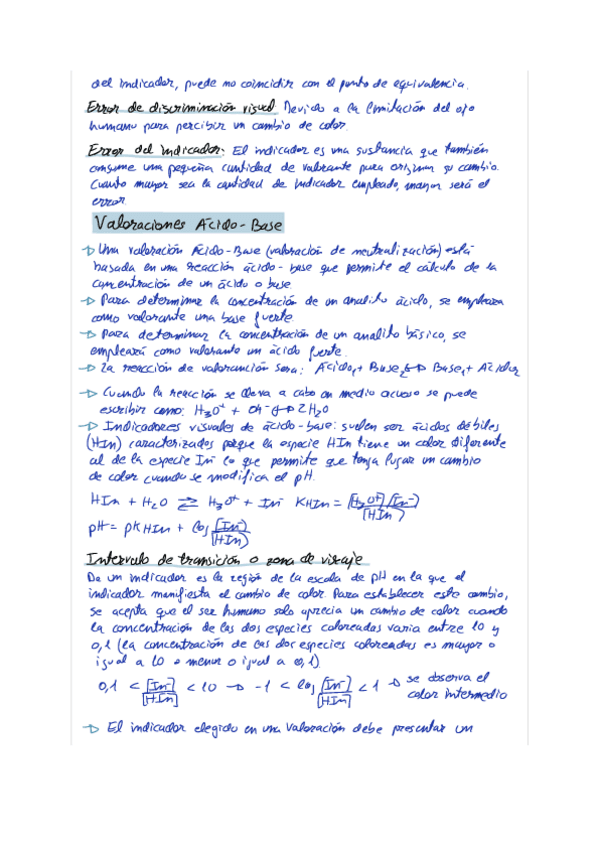 del indicador, puede no coincidir con el punto de equivalencia.
Error de discriminación visual Devido a la limitación del ojo
humano para percibir un cambio de color.
Error del indicador: El indicador es una sustancia que también
consume una pequeña cantidad de valorante para originar su cambio.
Cuanto mayor sea la cantidad de indicador empleado, mayor será el
error
Valoraciones Ácido-Base
→ Una valoración Ácido-Base (valoración de neutralización) está
basada en una reacción ácido-base que permite el cálculo de la
concentración de un ácido o base
→ Para determinar la concentración de un analito ácido, se empleara
como valorante una base fuerte
→ Para determinar la concentración de un analito básico, se
empleará como valorante un ácido fuerte.
→ La reacción de valoración sera: Ácido₁ + Base₂ ↔ Base₁ + Ácido₂
→ Cuando la reacción se lleva a cabo en medio acuoso se puede
escribir como: H₃O⁺ + OH⁻ ↔ 2H₂O
→ Indicadores visuales de ácido-base: suelen ser ácidos débiles
(HIn) caracterizados porque la especie HIn tiene un color diferente
al de la especie In⁻ lo que permite que tenga lugar un cambio
de color cuando se modifica el pH.
HIn + H₂O ⇌ H₃O⁺ + In⁻ KHIn = [H₃O⁺][In⁻] / [HIn]
pH = pKHIn + log [In⁻] / [HIn]
Intervalo de transición o zona de viraje
De un indicador es la región de la escala de pH en la que el
indicador manifiesta el cambio de color. Para establecer este cambio,
se acepta que el ser humano solo aprecia un cambio de color cuando
la concentración de las dos especies coloreadas varia entre 10 y
0,1 (la concentración de las dos especies coloreadas es mayor o
igual a 10 o menor o igual a 0,1)
0,1 < [In⁻] / [HIn] < 10 → -1 < log [In⁻] / [HIn] < 1 → se observa el
color intermedio
→ El indicador elegido en una valoración debe presentar un